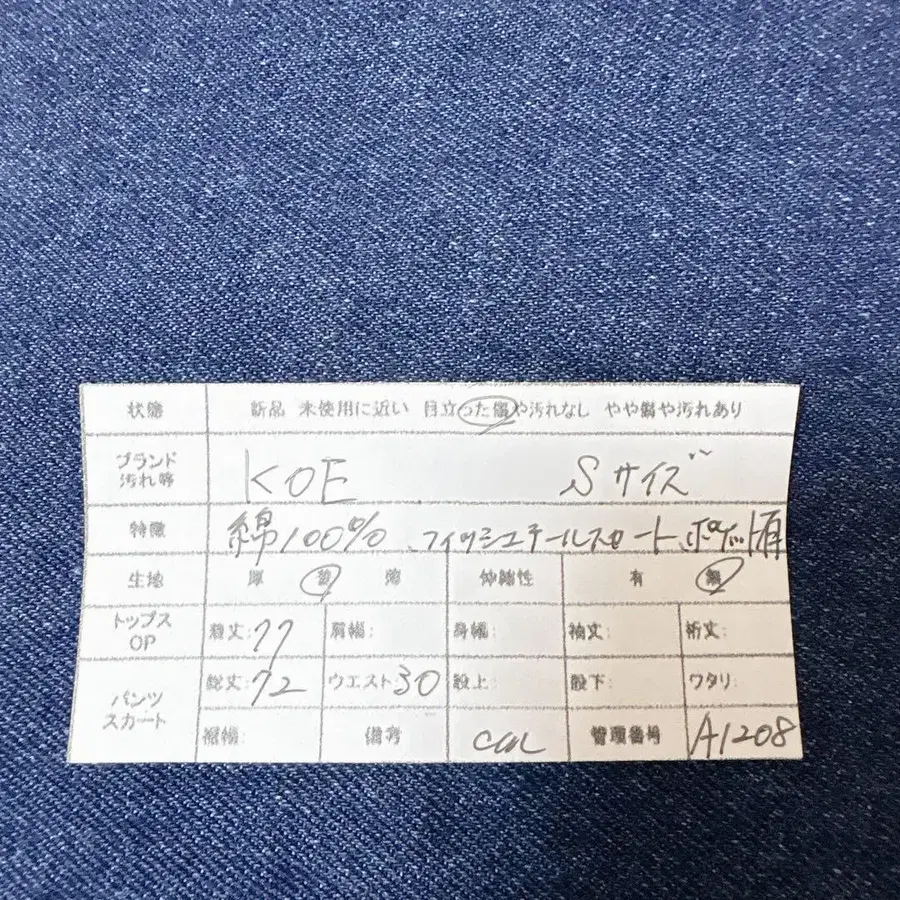 状態 新品 未使用に近い 目立った傷や汚れなし やや傷や汚れあり
ブランド
汚れ等 KOE Sサイズ
特徴 綿100% フィッシュテールスカート ポケット有
生地 厚 普 薄 伸縮性 有 無
トップス
OP 着丈:77 肩幅: 身幅: 袖丈: 裄丈:
パンツ
スカート 総丈:72 ウエスト:30 股上: 股下: ワタリ:
裾幅: 備考 管理番号 A1208